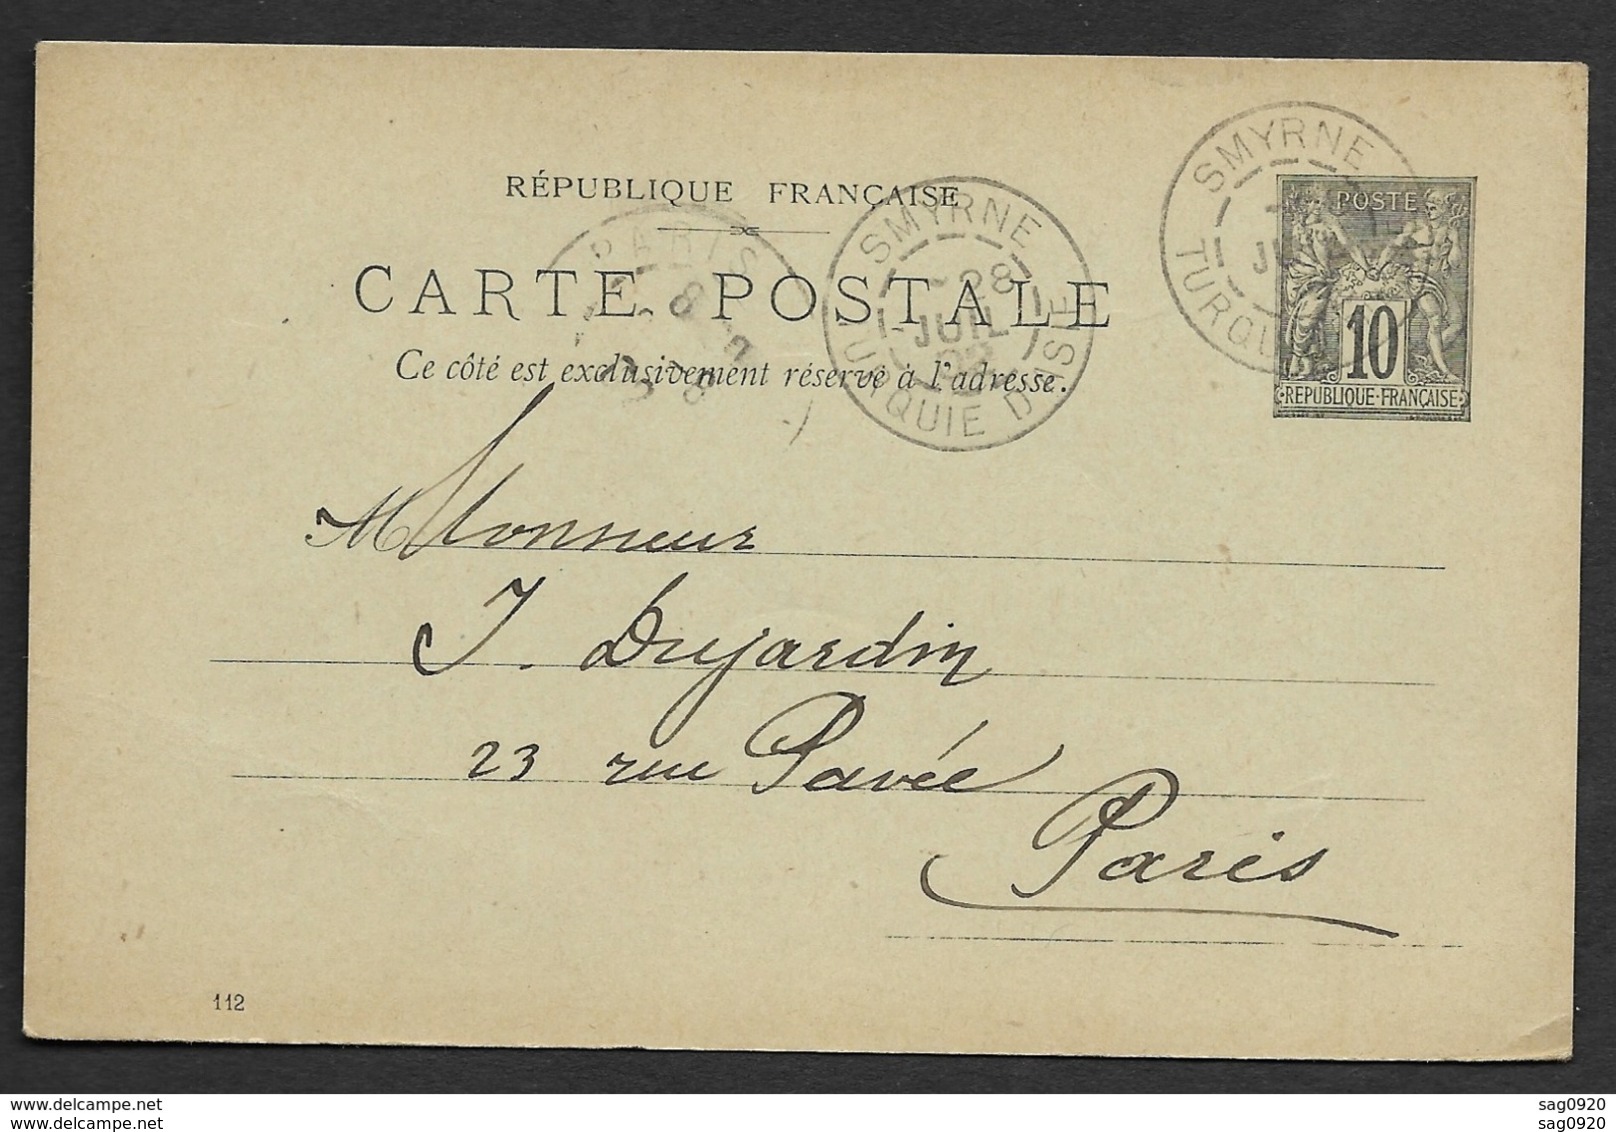 RÉPUBLIQUE FRANÇAISE
CARTE POSTALE
Ce côté est exclusivement réservé à l'adresse.
SMYRNE
28
JUIL
TURQUIE D'ASIE
SMYRNE
POSTE
10
REPUBLIQUE·FRANÇAISE
PARIS
Monsieur
J. Dujardin
23 rue Pavée
Paris
112
www.delcampe.net
www.delcampe.net
sag0920
sag0920